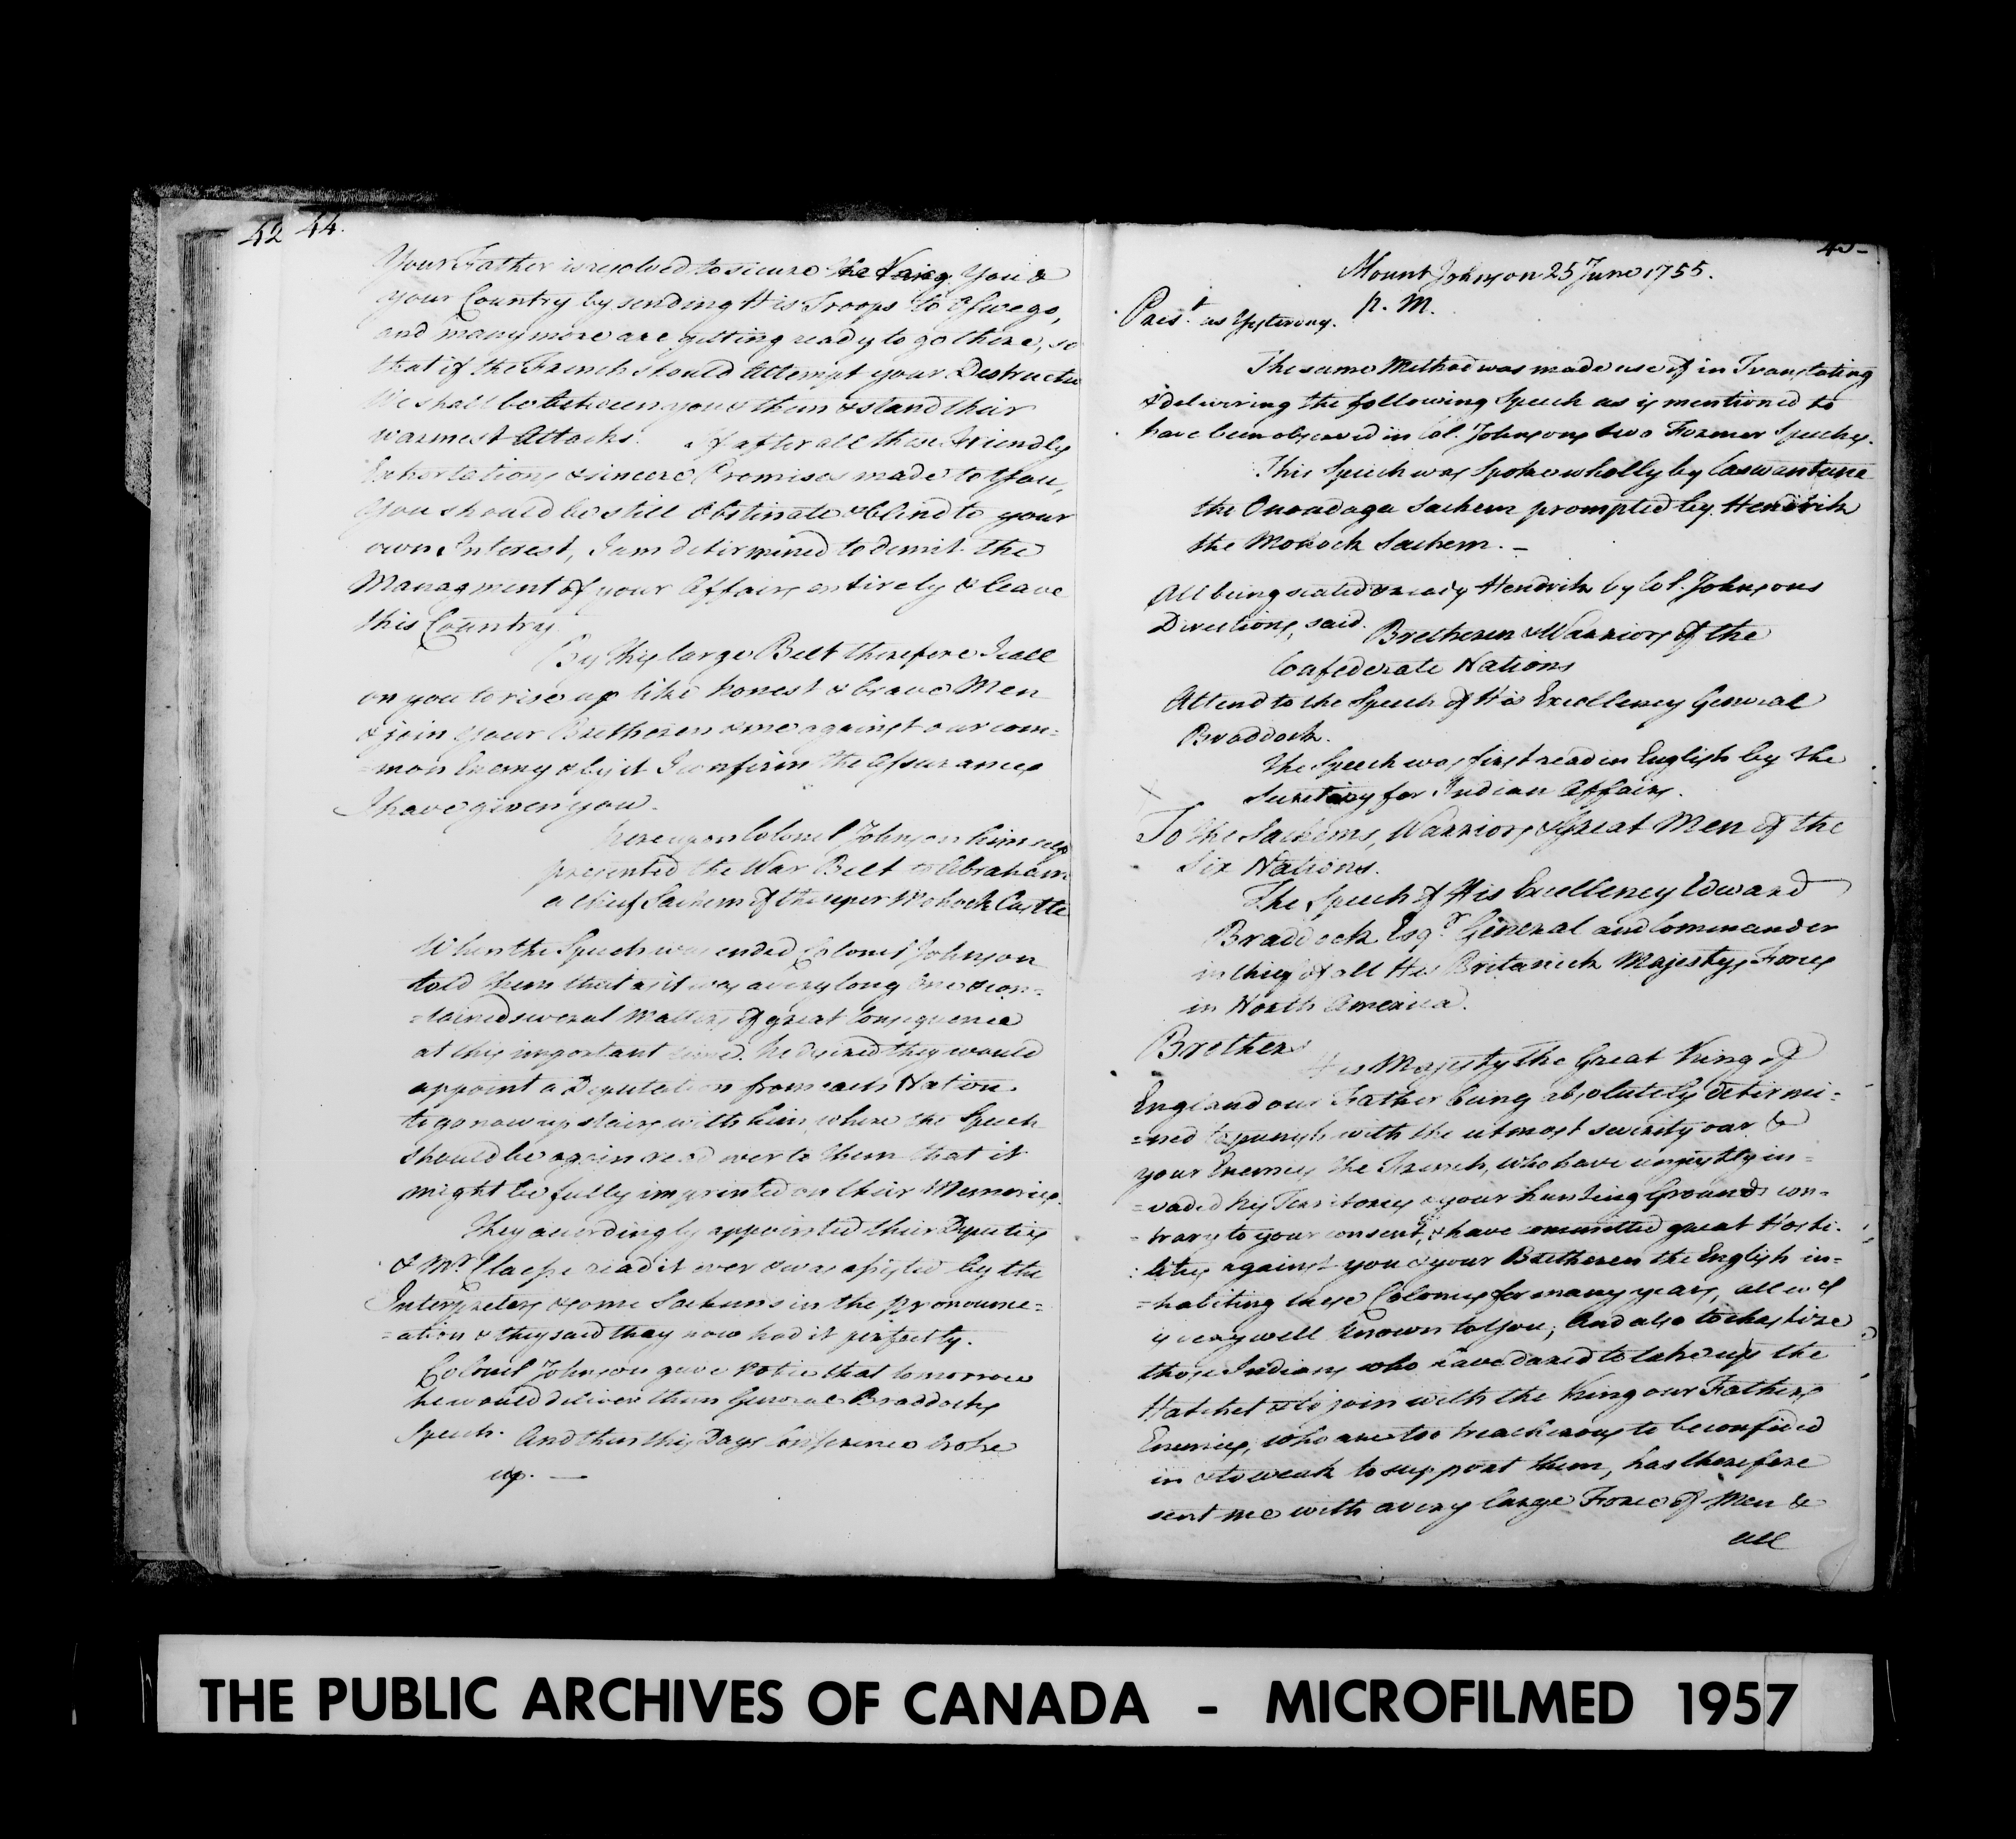 42 44.
Your Father is resolved to secure the King You &
your Country by sending His Troops to Oswego,
and many more are getting ready to go there, so
that if the French should Attempt your Destructio
We shall be between you & them & stand their
warmest Attacks. If after all these Friendly
Exhortations & sincere Promises made to You,
You should be still Obstinate & blind to your
own Interest, I am determined to demit the
Managment of your Affairs entirely & leave
this Country.
By this large Belt therefore I call
on you to rise up like honest & brave Men
& join your Bretheren & me against our com=
=mon Enemy & by it I confirm the Assurances
I have given you.
here upon Colonel Johnson himself
presented the War Belt to Abraham
a chief Sachem of the uper Mohock Castle
When the Speech was ended Colonel Johnson
told them that as it was a very long One & con=
=tained several Matters of great Consequence
at this important time. he desired they would
appoint a Deputation from each Nation
to go now up stairs with him, where the Speech
should be again read over to them that it
might be fully imprinted on their Memories.
They accordingly appointed their Deputies
& Mr. Claesse read it over & was assisted by the
Interpreters & some Sachems in the pronounce=
=ation & they said they now had it perfectly.
Colonel Johnson gave Notice that tomorrow
he would deliver them General Braddocks
Speech. And then this Days Conference broke
up. —
45
Mount Johnson 25 June 1755.
p. M.
Prest. as Yesterday.
The same Method was made use of in Translating
& delivering the following Speech as is mentioned to
have been observed in Col. Johnsons two Former Speeches.
This Speech was Spoke wholly by Caswantune
the Onondaga Sachem prompted by Hendrik
the Mohock Sachem. —
All being seated & ready Hendrik by Col. Johnsons
Directions, said. Bretheren & Warriors of the
Confederate Nations
Attend to the Speech of His Excellency General
Braddock.
The Speech was first read in English by the
Secretary for Indian Affairs.
To the Sachems, Warriors & Great Men of the
Six Nations.
The Speech of His Excellency Edward
Braddock Esqr. General and Commander
in chief of all His Britanick Majestys Forces
in North America.
Brothers
His Majesty the Great King of
England our Father being absolutely determi=
=ned to punish with the utmost severity our &
your Enemies the French, who have unjustly in=
=vaded his Territories & your hunting Grounds con=
=trary to your consent, & have committed great Hosti=
lities against you & your Bretheren the English in=
=habiting these Colonies for many years, all wch
is very well known to You; And also to chastize
those Indians who have dared to take up the
Hatchet & to join with the King our Fathers
Enemies, who are too treacherous to be confided
in & to weak to support them, has therefore
sent me with a very large Force of Men &
all
THE PUBLIC ARCHIVES OF CANADA - MICROFILMED 1957